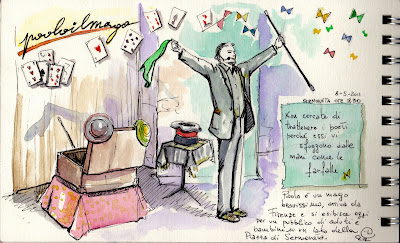 paoloilmago
8-5-2011
SERMONETA ORE 18.30
Non cercate di
trattenere i poeti
perché essi vi
sfuggono dalle
mani come le
farfalle
Paolo è un mago
bravissimo, arriva da
Firenze e si esibisce oggi
per un pubblico di adulti e
bambini su un lato della
Piazza di Sermoneta.